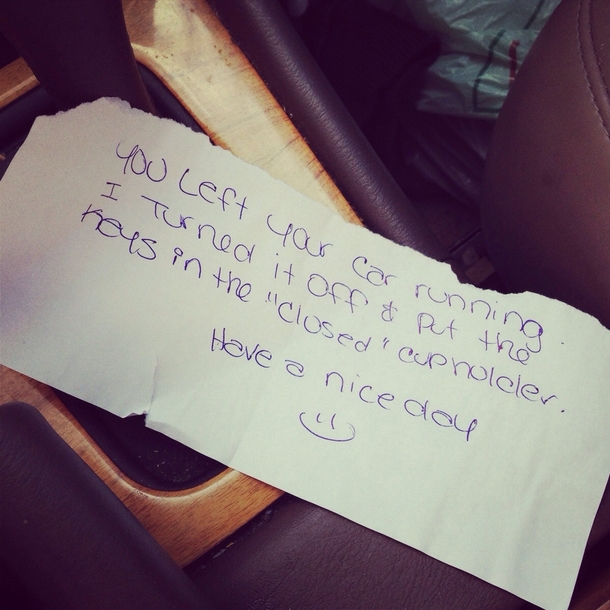 you Left your car running.
I Turned it off & put the
keys in the "closed" cupholder.
Have a nice day